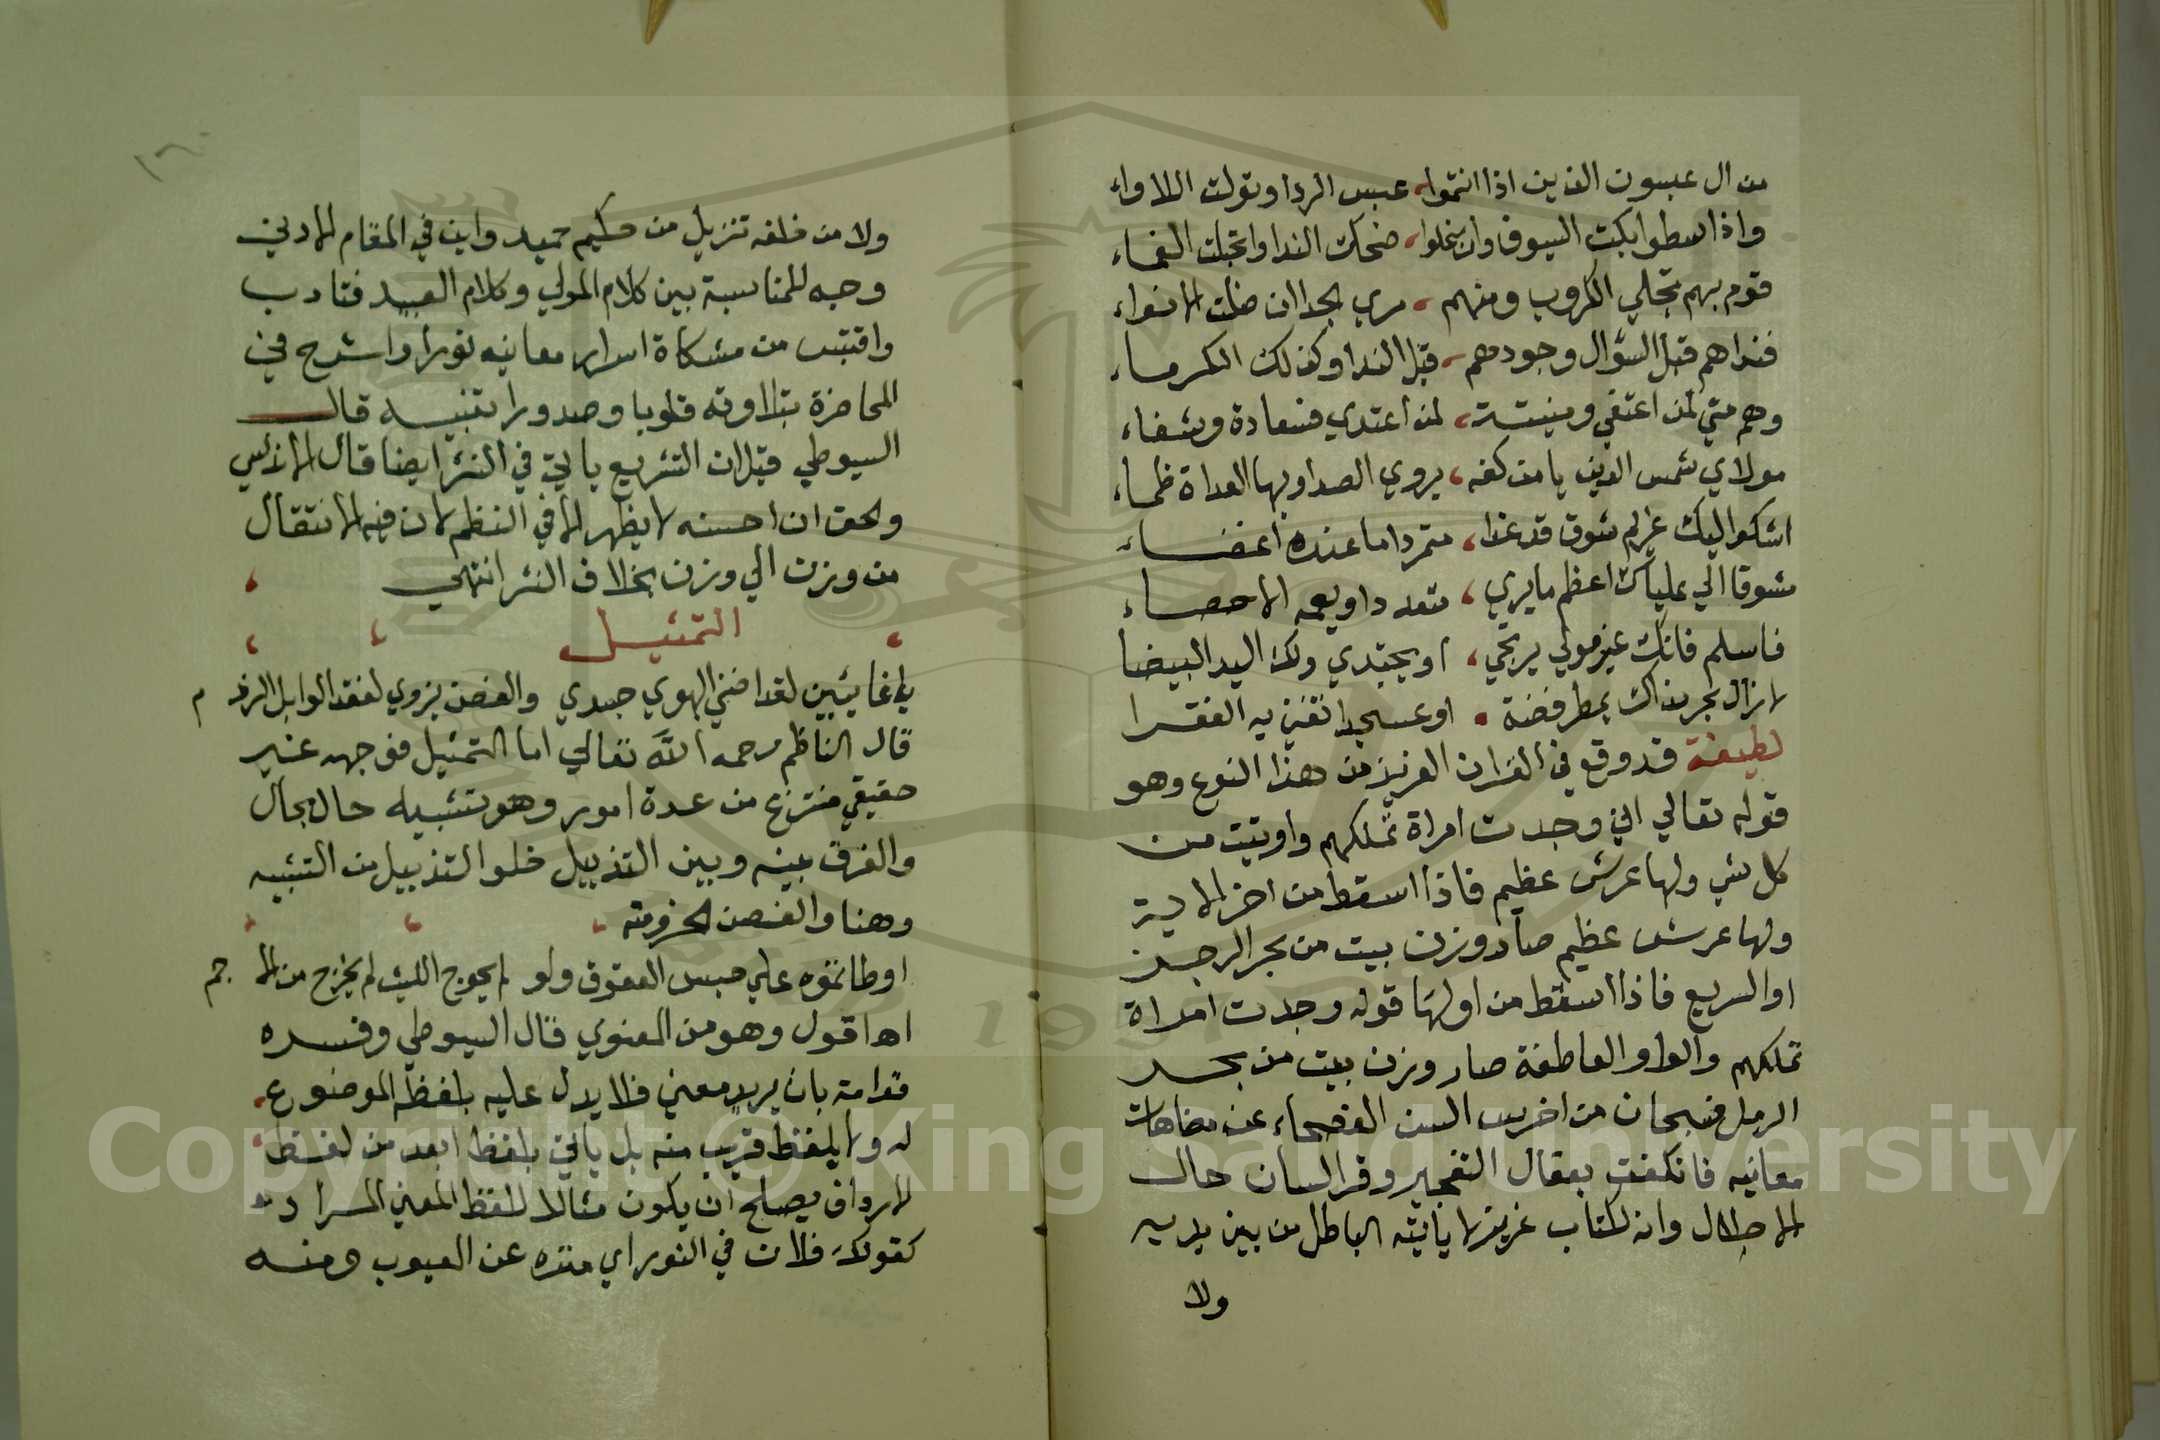 من ال عبسون الذين اذا انتموا، عبس الردا وتولت اللاواء
واذا سطوا بكت السيوف وان سخلوا، ضحك الندا وانجلت الغماء
قوم بهم تجلي الكروب ومنهم، مري الجدا ان ضلت الانواء
فنداهم قبل السؤال وجودهم، قبل الندا وكذلك الكرماء
وهم متي لمن اعتفي ومنيتة، لمن اعتدي فسعادة وشقاء
مولاي شمس الدين يا من كفه، يروي الصدا وبها العداة ظماء
اشكوا اليك غريم شوق قد غدا، متمردا ما عنده اغضاء
شوقا الي علياك اعظم ما يري، متعددا ويعمه الاحصاء
فاسلم فانك غير مولي يرتجي، او يجتدي ولك اليد البيضا
لا زال بحر نداك يمطر فضة، او عسجدا تغني به الفقرا
لطيفة قد وقع في القران العزيز من هذا النوع وهو
قوله تعالي اني وجدت امراة تملكهم واوتيت من
كل شي ولها عرش عظيم فاذا اسقط من اخر الاية
ولها عرش عظيم صار وزن بيت من بحر الرجز
او السريع فاذا اسقط من اولها قوله وجدت امراة
تملكهم والواو العاطفة صار وزن بيت من بحر
الرمل فسبحان من اخرس السن الفصحاء عن مضاهات
معانيه فانكفت بعقال التقصير وقر لسان حال
الاطلال وانه لكتاب عزيز لا ياتيه الباطل من بين يديه
ولا
ولا من خلفه تنزيل من حكيم حميد واين في المقام الادني
وجه للمناسبة بين كلام المولي وكلام العبيد فتادب
واقتبس من مشكاة اسرار معانيه نورا واشرح في
المحاضرة بتلاوته قلوبا وصدورا تنبيه قال
السيوطي قيل ان التشريع ياتي في النثر ايضا قال الاندلسي
والحق ان احسنه لا يظهر الا في النظم لان فيه الانتقال
من وزن الي وزن بخلاف النثر انتهي
التمثيل
يا غايبين لقد اضني الهوي جسدي والغصن يزوي لفقد الوابل الرذم
قال الناظم رحمه الله تعالي اما التمثيل فوجهه غير
حقيقي منتزع من عدة امور وهو تشبيه حال بحال
والفرق بينه وبين التذييل خلو التذييل من التشبيه
وهنا والغصن الخ زمته
او طانموه علي حبس العقوق ولو لم يحوج الليث لم يخرج من الاجم
اه اقول وهو من المعنوي قال السيوطي وفسره
قدامة بان يريد معني فلا يدل عليه بلفظه الموضوع
له ولا بلفظ قريب منه بل ياتي بلفظ ابعد من لفظ
الارداف يصلح ان يكون مثالا للفظ المعني المراد
كقولك فلان في النور اي منزه عن العيوب ومنه